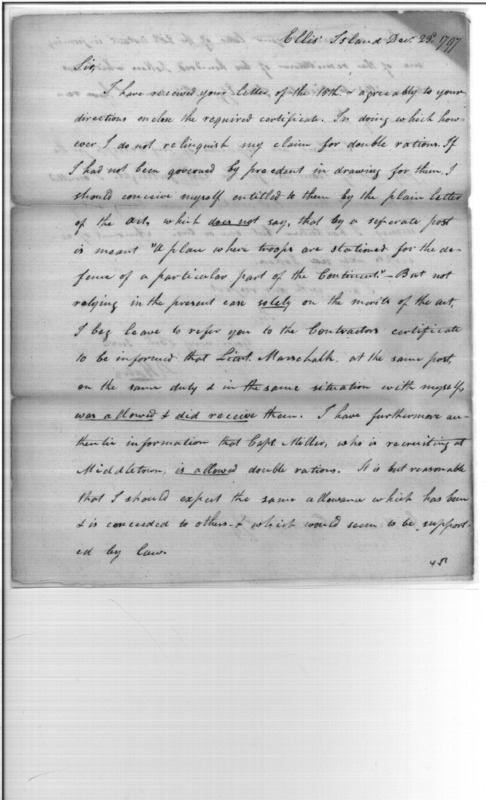 Ellis Island Decr. 23d. 1797
Sir,
I have received your letter of the 18th. & agreeably to your
directions enclose the required certificate. In doing which how-
ever, I do not relinquish my claim for double rations. If
I had not been governed by precedent in drawing for them, I
should conceive myself entitled to them by the plain letter
of the act, which does not say, that by a seperate post
is meant "A place where troops are stationed for the de-
fence of a particular part of the Continent" - But not
relying in the present case solely on the merits of the act,
I beg leave to refer you to the Contractors certificate
to be informed that Lieut. Marschalk, at the same post,
on the same duty & in the same situation with myself,
was allowed & did receive them. I have furthermore au-
thentic information that Capt. Miller, who is recruiting at
Middletown, is allowed double rations. It is but reasonable
that I should expect the same allowance which has been
& is conceeded to others - & which would seem to be support-
ed by law.